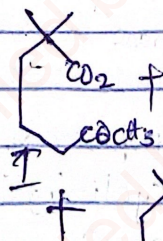 CO2
COCH3
I